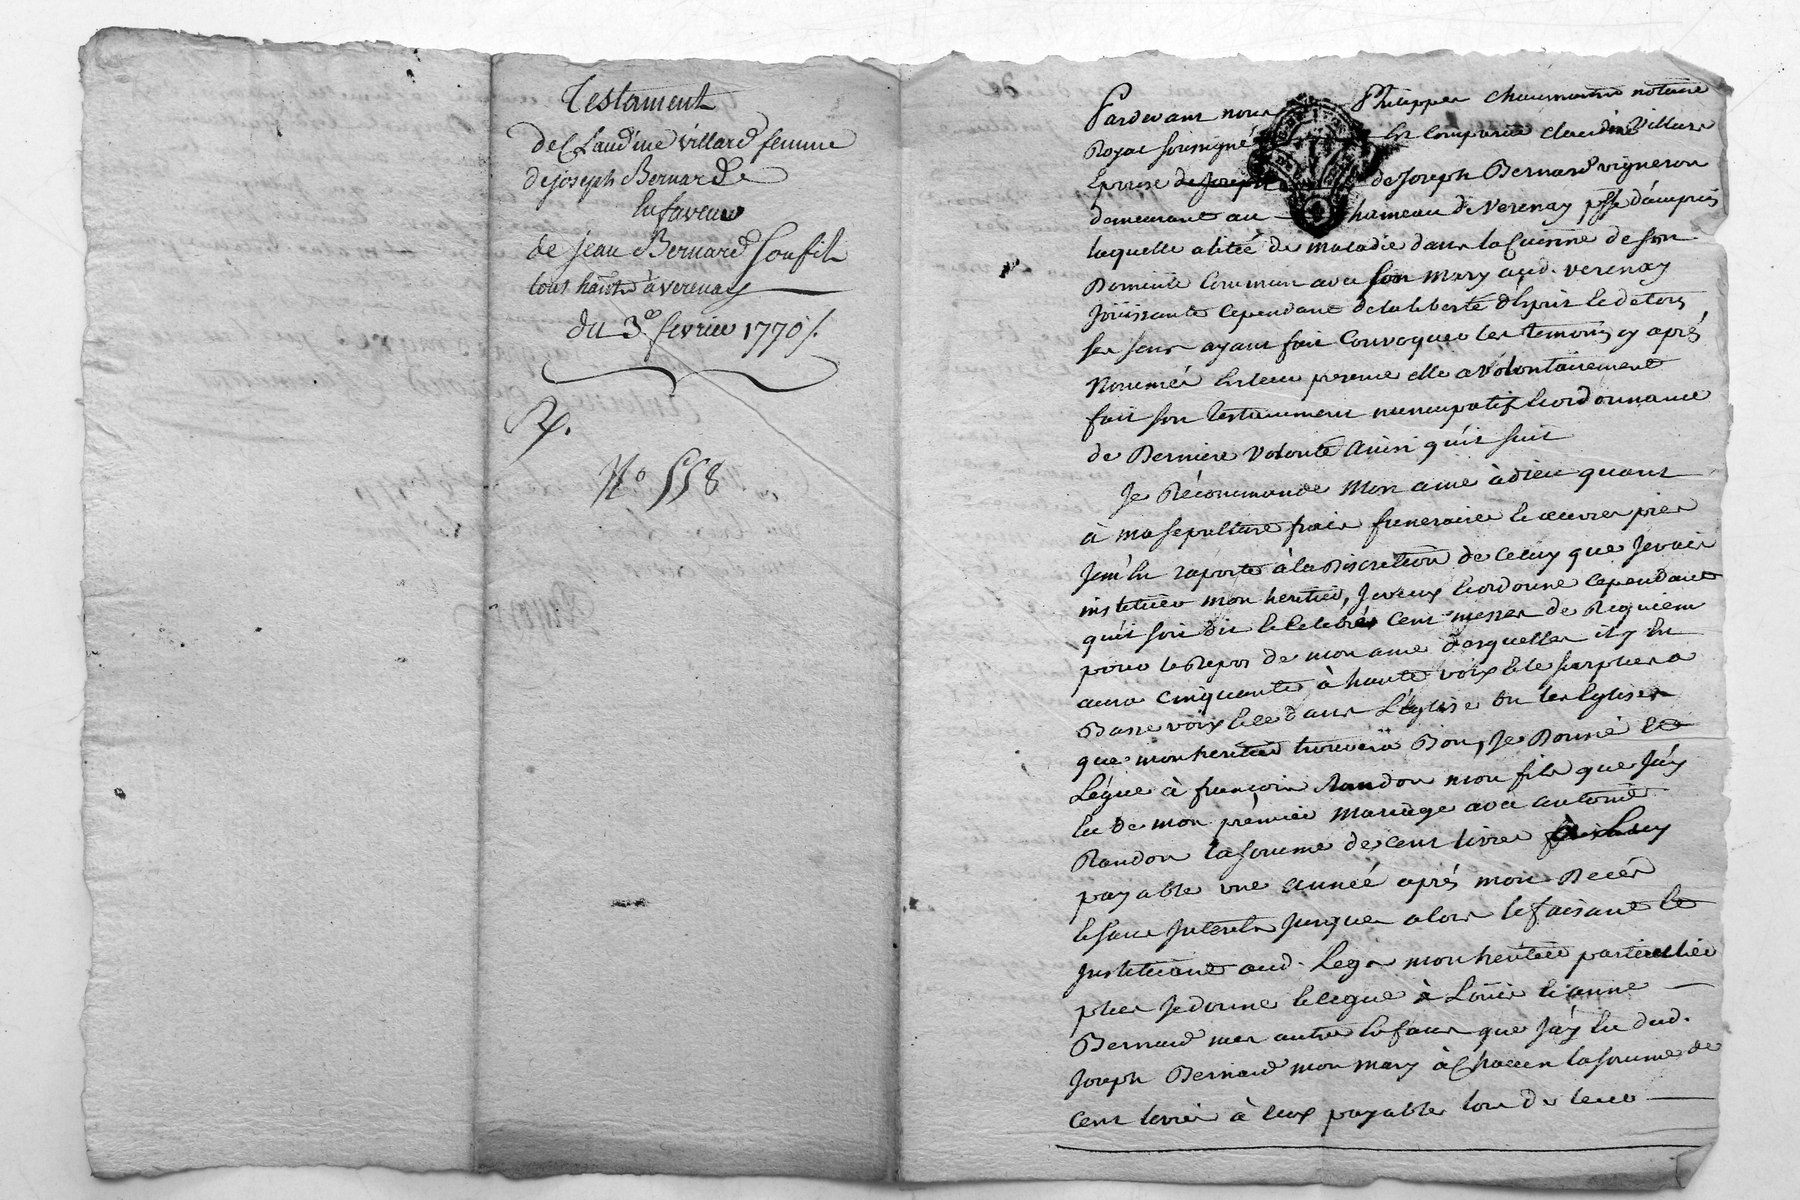 Testament
de Claudine Villard femme
de joseph Bernard
en faveur
de jean Bernard son fils
tous habnts à verenay
du 3e fevrier 1770 /.
No 558
Pardevant nous Philippe chaumartin notaire
Royal soussigné est comparue claudine Villard
Epouse de Joseph de Joseph Bernard vigneron
demeurant au hameau de Verenay psse d'ampuis
laquelle alitée de maladie dans la Cuisine de son
Domicile Commun avec son mary aud. verenay
Joüissante cependant de la liberté d'Esprit et de tous
ses sens ayant fait Convoquer les temoins cy après
Nommés En leur presence elle a volontairement
fait son testament nuncupatif et ordonnance
de Derniere Volonté ainsi qu'il suit
Je Récommande Mon ame à dieu quant
à ma sepulture frais funeraires et œuvres pies
Jm'En raporte à la Discretion de celuy que Je vais
instituer mon heritier, Je veux et ordonne cependant
qu'il soit dit et celebré cent messes de Requiem
pour le Repos de mon ame desquelles il y En
aura cinquante à haute voix et le surplus a
Basse voix et ce dans L'église ou les Eglises
que mon heritier trouvera Bon, Je Donne et
Légue à françois Randon mon fils que J'ay
Eu de mon prémier Mariage avec antoine
Randon la somme de cent livres
payable une année après mon Decès
et sans Interets Jusques alors le faisant et
Instituant aud. Legs mon heritier particulier
plus Je donne et legue à Loüis et anne
Bernard mes autres Enfans que J'ay Eu dud.
Joseph Bernard mon mary à Chacun la somme de
cent livres à eux payables lors de leur